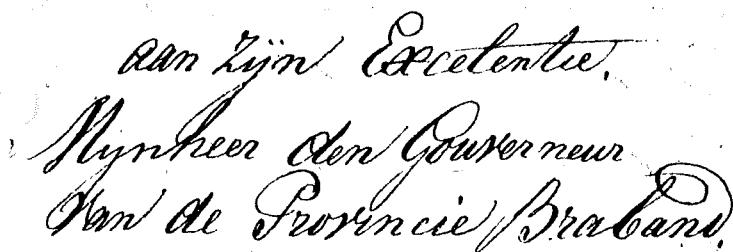 aan Zijn Excelentie.
Mynheer den Gouverneur
Van de Provincie Braband